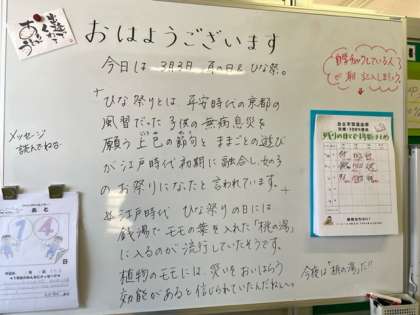 おはようございます
今日は 3月3日 耳の日&ひな祭。
ひな祭りとは、平安時代の京都の
風習だった 子供の無病息災を
願う上巳の節句と ままごとの遊び
が江戸時代初期に融合し女の子
のお祭りになったと言われています。
江戸時代 ひな祭りの日には
銭湯で モモの葉を入れた「桃の湯」
に入るのが流行していたそうです。
植物のモモには、災いをおいはらう
効能があると信じられていたんだねぇ。
今夜は"桃の湯"だ!!
メッセージ
読んでね
自学
記入しましょう
あと
14
日